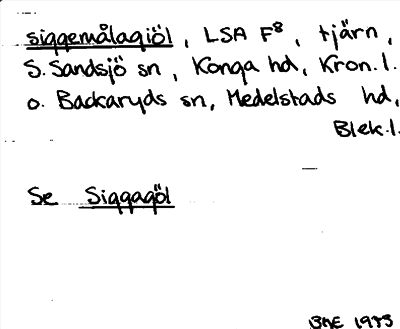 siggemålagiöl, LSA F⁸, tjärn,
S. Sandsjö sn, Konga hd, Kron. l.
o. Backaryds sn, Medelstads hd,
Blek. l.
Se Siggagöl
1973